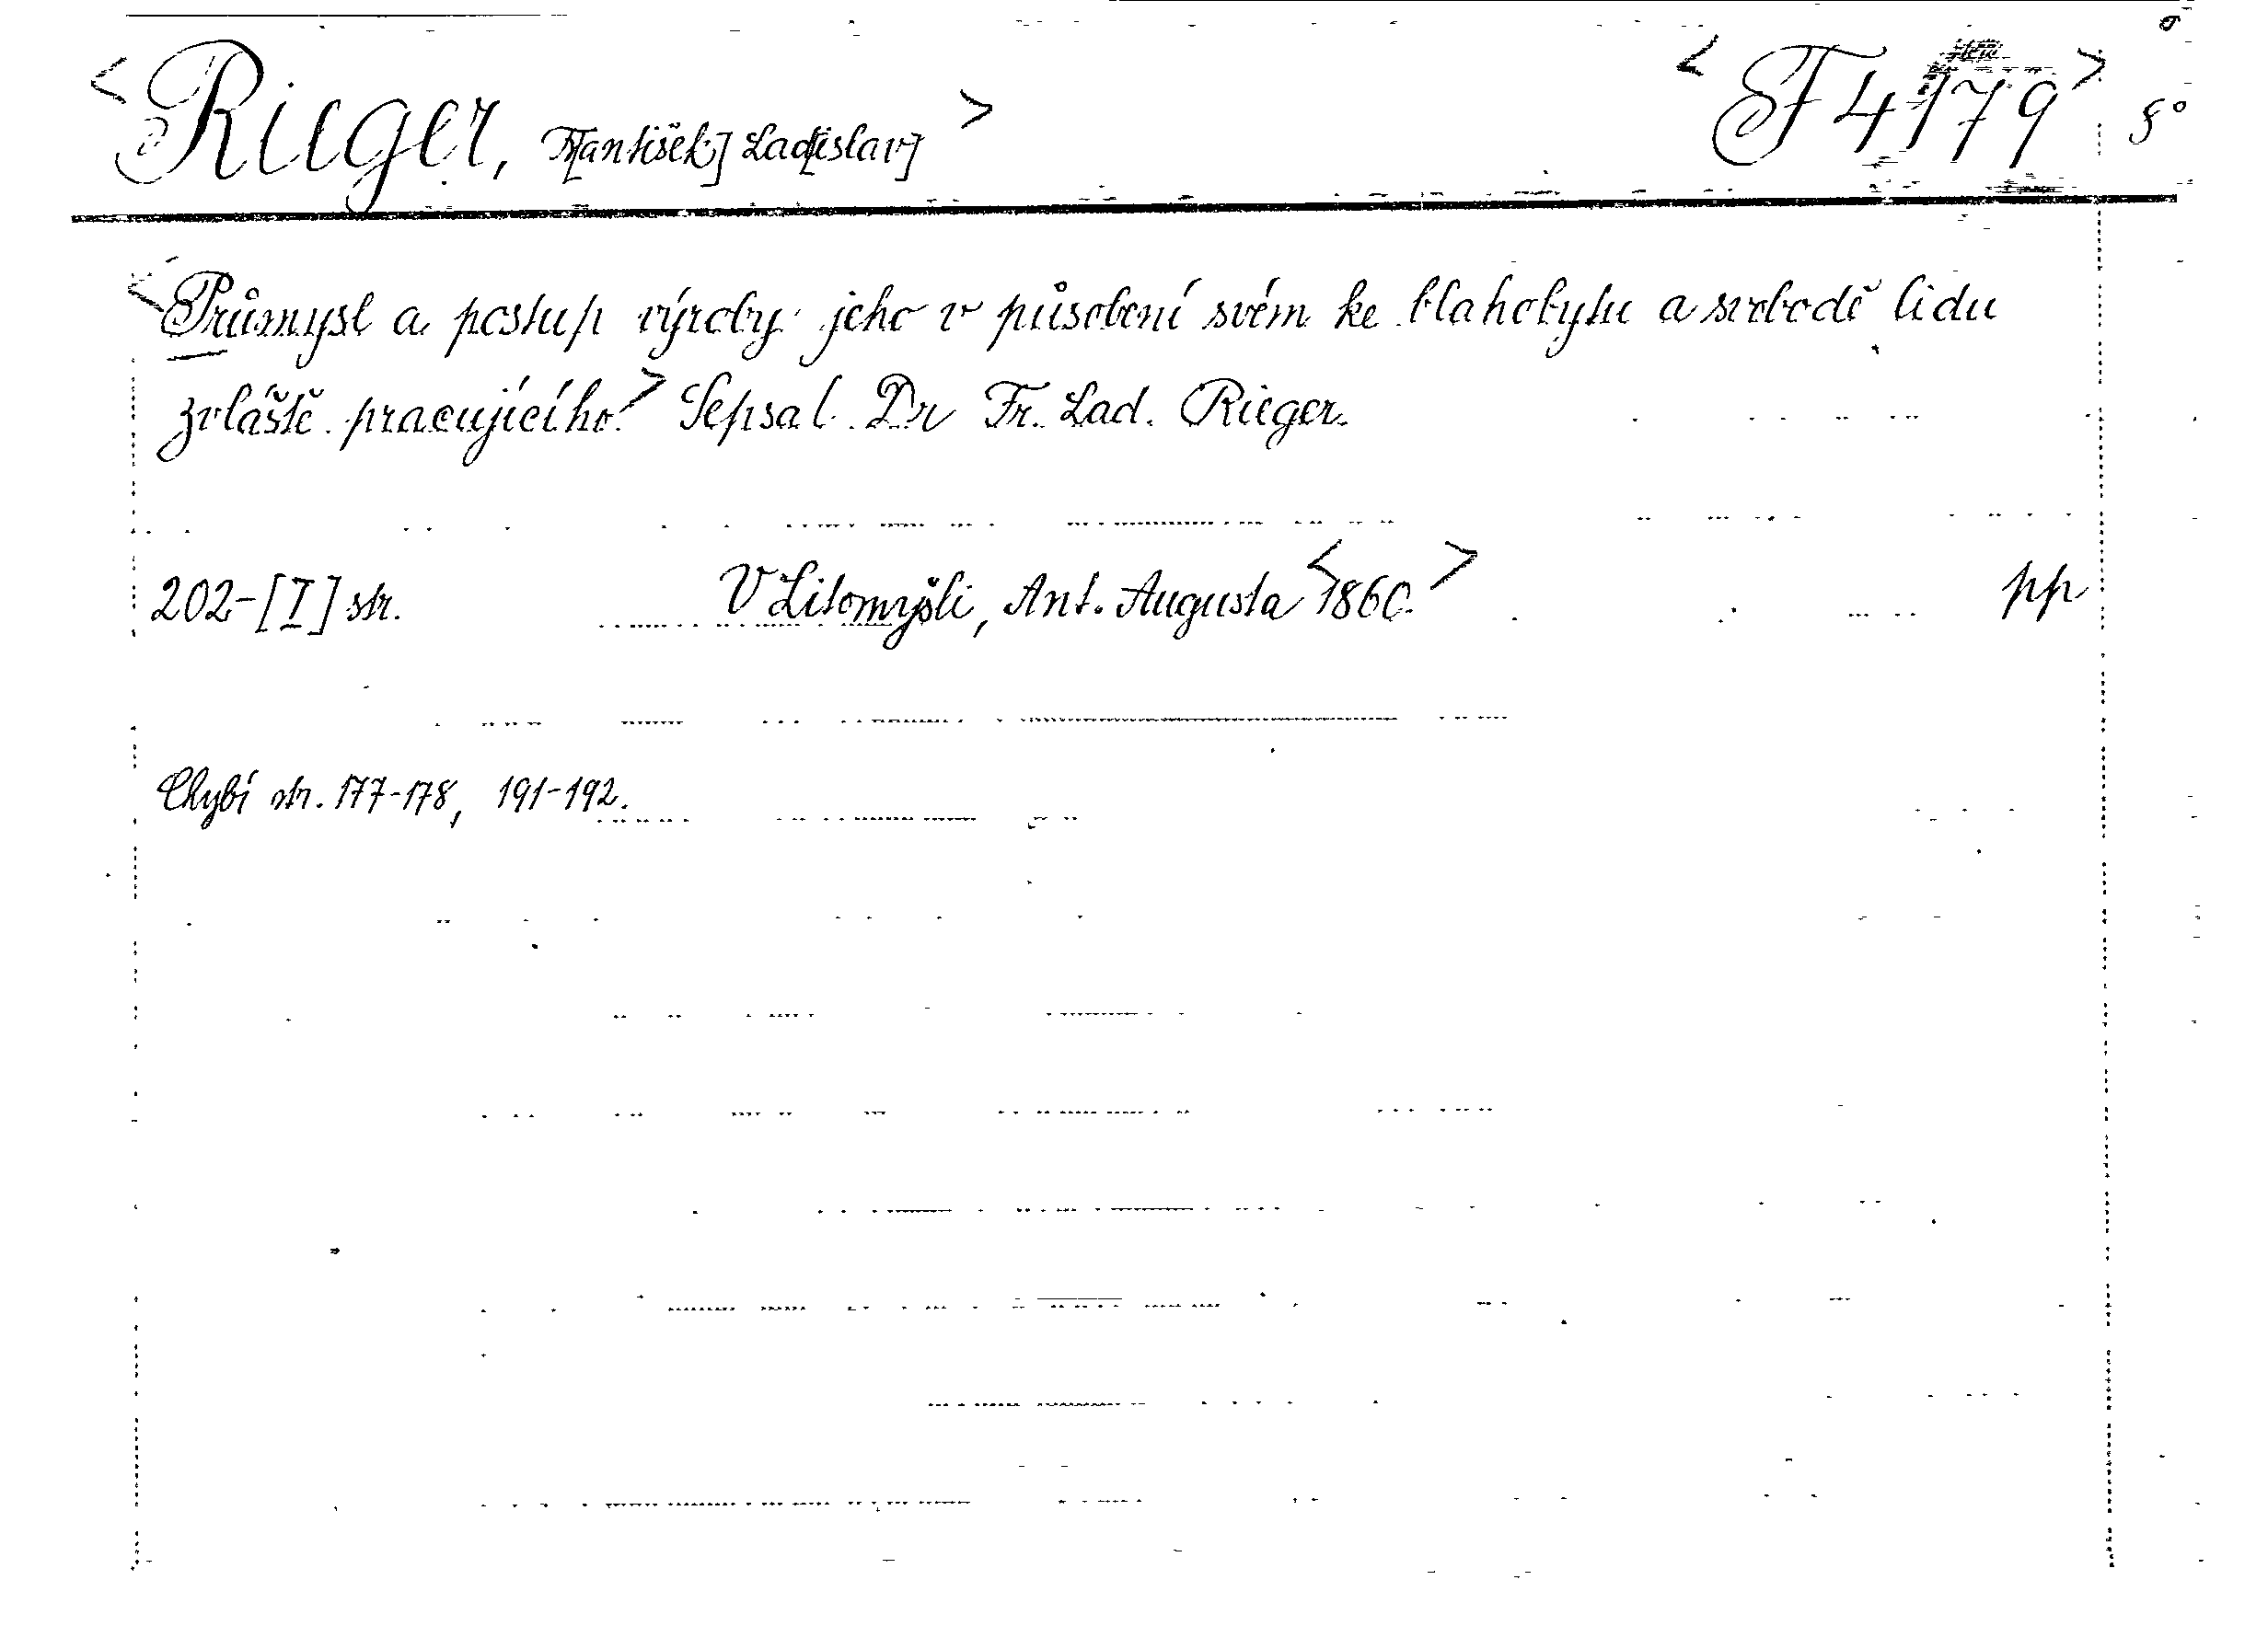 <Rieger, Fr[antišek] Lad[islav]> <F 4179> 8°
<Průmysl a postup výroby jeho v působení svém ke blahobytu a svobodě lidu
zvláště pracujícího.> Sepsal Dr Fr. Lad. Rieger.
202-[I] str. V Litomyšli, Ant. Augusta <1860.> pp
Chybí str. 177-178, 191-192.